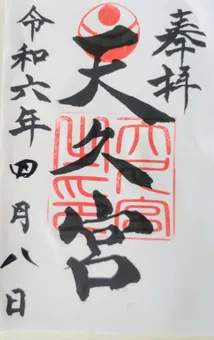 奉拝
天久宮
令和六年四月八日